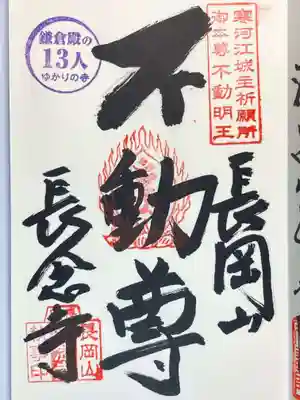 寒河江城主祈願所
御本尊不動明王
長岡山
不動尊
鎌倉殿の
13人
ゆかりの寺
長念寺
長岡山